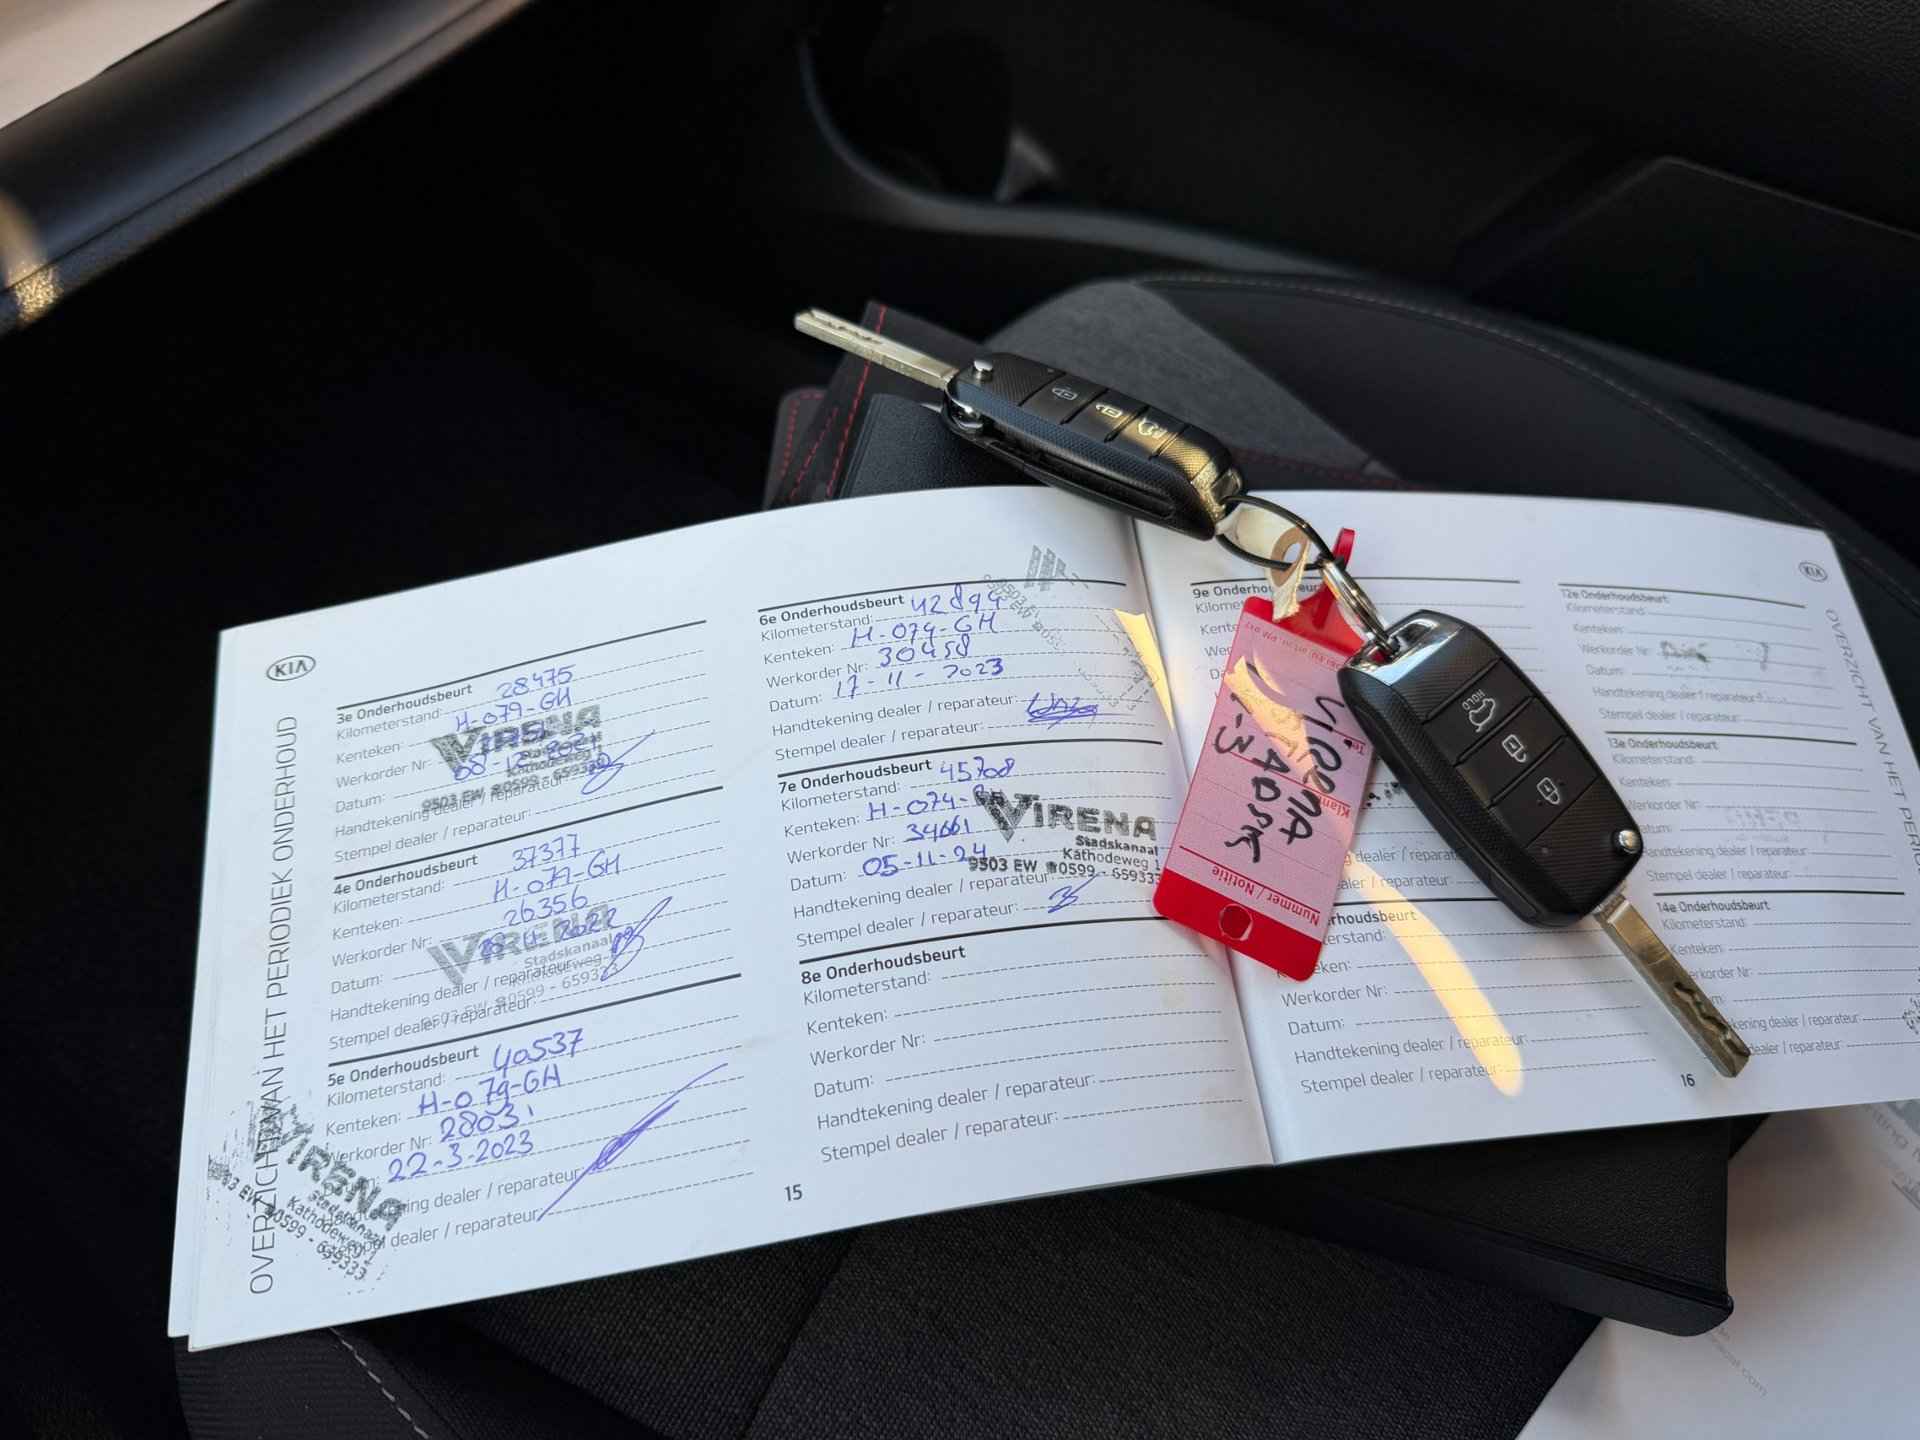 OVERZICHT VAN HET PERIODIEK ONDERHOUD
KIA
3e Onderhoudsbeurt
Kilometerstand: 28475
Kenteken: H-079-GH
Werkorder Nr:
Datum: 08-12-2021
Handtekening dealer / reparateur:
Stempel dealer / reparateur:
VIRENA
Stadskanaal
Kathodeweg 1
9503 EW ☎0599 - 659333
4e Onderhoudsbeurt
Kilometerstand: 37377
Kenteken: H-079-GH
Werkorder Nr: 26356
Datum: 2022
Handtekening dealer / reparateur:
Stempel dealer / reparateur:
VIRENA
Stadskanaal
Kathodeweg 1
9503 EW ☎0599 - 659333
5e Onderhoudsbeurt
Kilometerstand: 40537
Kenteken: H-079-GH
Werkorder Nr: 28031
Datum: 22-3-2023
Handtekening dealer / reparateur:
Stempel dealer / reparateur:
VIRENA
Stadskanaal
Kathodeweg 1
9503 EW ☎0599 - 659333
6e Onderhoudsbeurt
Kilometerstand: 42899
Kenteken: H-079-GH
Werkorder Nr: 30458
Datum: 17-11-2023
Handtekening dealer / reparateur:
Stempel dealer / reparateur:
9503 EW
7e Onderhoudsbeurt
Kilometerstand: 45708
Kenteken: H-079-
Werkorder Nr: 34661
Datum: 05-11-24
Handtekening dealer / reparateur:
Stempel dealer / reparateur:
VIRENA
Stadskanaal
Kathodeweg 1
9503 EW ☎0599 - 659333
8e Onderhoudsbeurt
Kilometerstand:
Kenteken:
Werkorder Nr:
Datum:
Handtekening dealer / reparateur:
Stempel dealer / reparateur:
15
9e Onderhoudsbeurt
VIRENA
STADSK
1-3
Nummer / Notitie
HOLD
Werkorder Nr:
Datum:
Handtekening dealer / reparateur:
Stempel dealer / reparateur:
16
KIA
12e Onderhoudsbeurt
Kilometerstand:
Kenteken:
Werkorder Nr:
Datum:
Handtekening dealer / reparateur:
Stempel dealer / reparateur:
13e Onderhoudsbeurt
Kilometerstand:
Kenteken:
Werkorder Nr:
Datum:
Handtekening dealer / reparateur:
Stempel dealer / reparateur:
14e Onderhoudsbeurt
Kilometerstand:
Kenteken:
Werkorder Nr:
OVERZICHT VAN HET PERIO